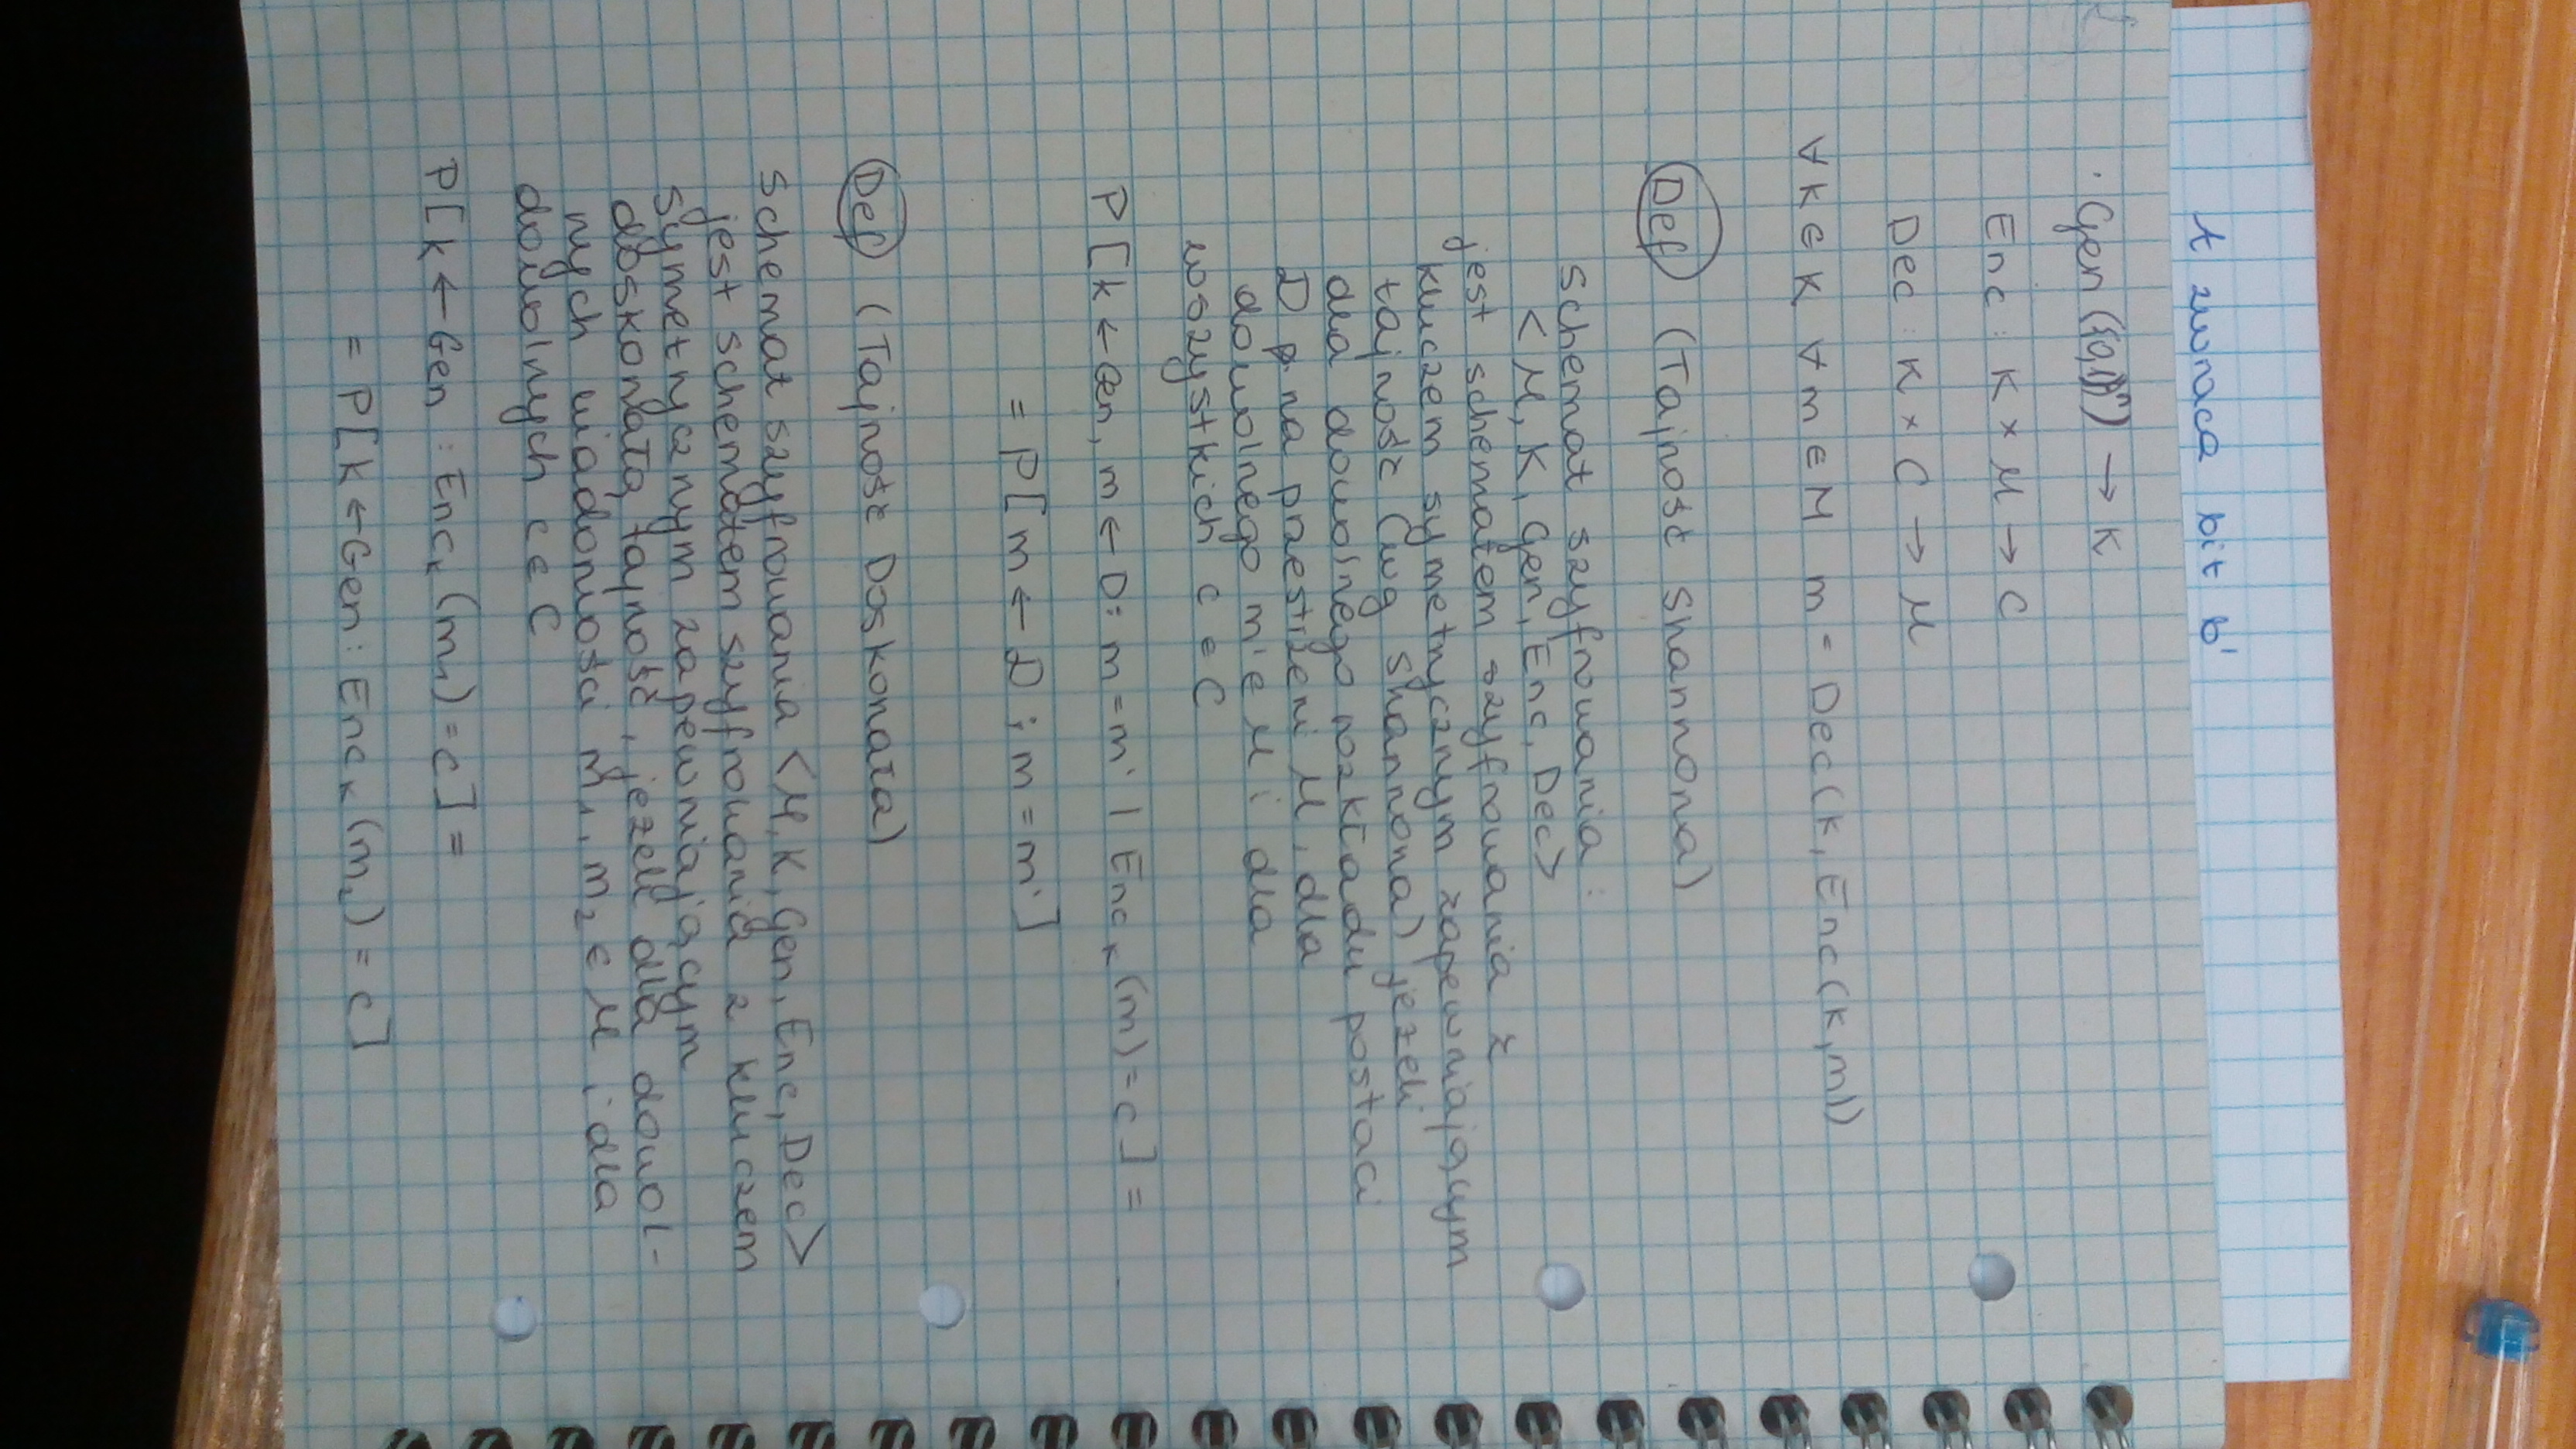 A zwraca bit b'
· Gen({0,1}ⁿ) → K
Enc : K × M → C
Dec : K × C → M
∀ k ∈ K ∀ m ∈ M m = Dec(k, Enc(k,m))
Def (Tajność Shannona)
Schemat szyfrowania :
<M, K, Gen, Enc, Dec>
jest schematem szyfrowania z
kluczem symetrycznym zapewniającym
tajność (wg Shannona) jeżeli
dla dowolnego rozkładu postaci
D na przestrzeni M, dla
dowolnego m' ∈ M i dla
wszystkich c ∈ C
P[k ← Gen, m ← D : m = m' | Encₖ(m) = c] =
= P[m ← D ; m = m']
Def (Tajność Doskonała)
Schemat szyfrowania <M, K, Gen, Enc, Dec>
jest schematem szyfrowania z kluczem
symetrycznym zapewniającym
doskonałą tajność, jeżeli dla dowol-
nych wiadomości m₁, m₂ ∈ M i dla
dowolnych c ∈ C
P[k ← Gen : Encₖ(m₁) = c] =
= P[k ← Gen : Encₖ(m₂) = c]